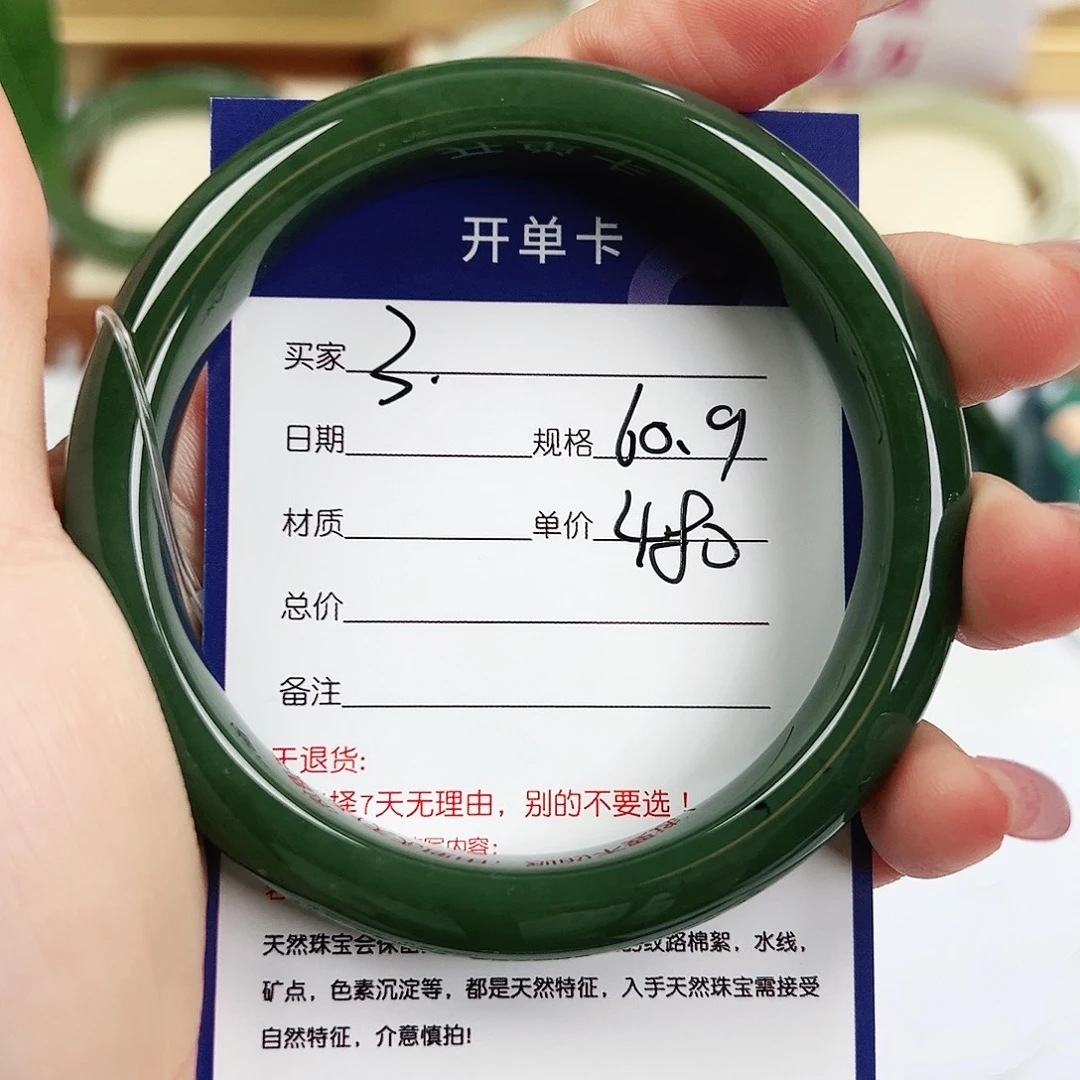 开单卡
买家 3.
日期 规格 60.9
材质 单价 480
总价
备注
退货:
择7天无理由，别的不要选！
内容:
天然珠宝会 纹路棉絮，水线，
矿点，色素沉淀等，都是天然特征，入手天然珠宝需接受
自然特征，介意慎拍!